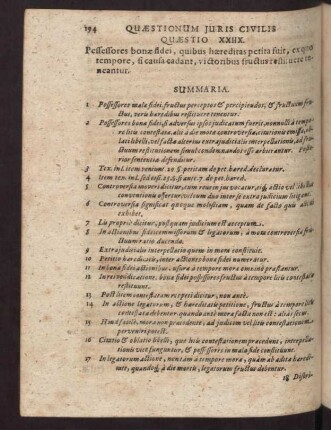 194 QUÆSTIONUM JURIS CIVILIS
QUÆSTIO XXIIX.
Possessores bonæ fidei, quibus hæreditas petita fuit, ex quo
tempore, si causa cadant, victoribus fructus restituere te-
neantur.
SUMMARIA.
1 Possessores mala fidei, fructus perceptos & percipiendos, & fructuum fru-
ctus, veris hæredibus restituere tenentur.
2 Possessores bona fidei, si adversus ipsos judicatum fuerit, nonnulli à tempore
litis contestatæ, alii à die motæ controversiæ,
oblati libelli, vel facta alia extrajudiciali interpellatione, ad
fructuum restitutionem condemnandos esse arbitrantur. Poste-
rior sententia defenditur.
3 Tex. in l. item veniunt. 20. § petitam de pet. hæred. declaratur.
4 Item tex. in l. sed etsi. 25. § si ante. 7. de pet. hæred.
5 Controversia moveri dicitur, cum reus in jus vocatur,
6 Controversia significat quoque molestiam, quam de facto quis alteri
exhibet.
7 Lis propriè dicitur, postquam judicium est acceptum.
8 In actionibus fideicommissorum & legatorum, à mora
ratio ducenda.
9 Extrajudicialis interpellatio quem in mora constituit.
10 Petitio hæreditatis, inter actiones bona fidei numeratur.
11 In bona fidei actionibus, usura à tempore mora omnino præstantur.
12 In rei vendicatione, bona fidei possessor fructus à tempore litis contestatæ
restituit.
13 Post litem contestatam res petit dicitur, non ante.
14 In actione legatorum, & hæreditatis petitione, fructus à tempore litis
contestatæ debentur, quando ante mora facta non est: alias secus.
15 non præcedente, ad judicem vel litis contestationem
perveniri potest.
16 Citatio & oblatio libelli, quæ litis contestationem præcedunt, interpella-
tionis vice funguntur, & possessores in mala fide constituunt.
17 In legatorum actione, non tam à tempore mora, quam ab adita heredita-
te, quandoque à die mortis, legatorum fructus debentur.
18 Distri-